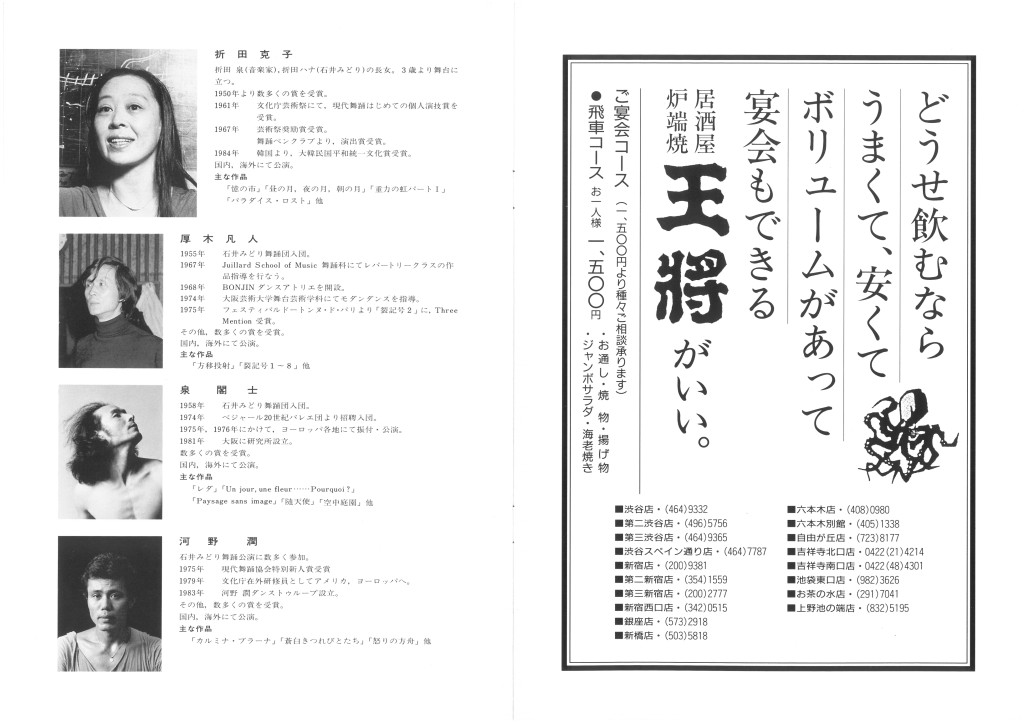 折田克子
折田 泉(音楽家),折田ハナ(石井みどり)の長女。３歳より舞台に
立つ。
1950年より数多くの賞を受賞。
1961年　文化庁芸術祭にて，現代舞踊はじめての個人演技賞を
受賞。
1967年　芸術祭奨励賞受賞。
舞踊ペンクラブより，演出賞受賞。
1984年　韓国より，大韓民国平和統一文化賞受賞。
国内，海外にて公演。
主な作品
「憶の市」「昼の月，夜の月，朝の月」「重力の虹パートⅠ」
「パラダイス・ロスト」他
厚木凡人
1955年　石井みどり舞踊団入団。
1967年　Juillard School of Music 舞踊科にてレパートリークラスの作
品指導を行なう。
1968年　BONJIN ダンスアトリエを開設。
1974年　大阪芸術大学舞台芸術学科にてモダンダンスを指導。
1975年　フェスティバルドートンヌ・ド・パリより「裂記号２」に，Three
Mention 受賞。
その他，数多くの賞を受賞。
国内，海外にて公演。
主な作品
「方移投射」「裂記号１－８」他
泉　閣士
1958年　石井みどり舞踊団入団。
1974年　ベジャール20世紀バレエ団より招聘入団。
1975年，1976年にかけて，ヨーロッパ各地にて振付・公演。
1981年　大阪に研究所設立。
数多くの賞を受賞。
国内，海外にて公演。
主な作品
「レダ」「Un jour, une fleur……Pourquoi？」
「Paysage sans image」「随天使」「空中庭園」他
河野　潤
石井みどり舞踊公演に数多く参加。
1975年　現代舞踊協会特別新人賞受賞
1979年　文化庁在外研修員としてアメリカ，ヨーロッパへ。
1983年　河野 潤ダンストゥループ設立。
その他，数多くの賞を受賞。
国内，海外にて公演。
主な作品
「カルミナ・ブラーナ」「蒼白きつれびとたち」「怒りの方舟」他
どうせ飲むなら
うまくて、安くて
ボリュームがあって
宴会もできる
居酒屋
炉端焼
王将がいい。
ご宴会コース（一、五〇〇円より種々ご相談承ります）
●飛車コース お一人様 一、五〇〇円
・お通し・焼 物・揚げ物
・ジャンボサラダ・海老焼き
■渋谷店・(464)9332
■第二渋谷店・(496)5756
■第三渋谷店・(464)9365
■渋谷スペイン通り店・(464)7787
■新宿店・(200)9381
■第二新宿店・(354)1559
■第三新宿店・(200)2777
■新宿西口店・(342)0515
■銀座店・(573)2918
■新橋店・(503)5818
■六本木店・(408)0980
■六本木別館・(405)1338
■自由が丘店・(723)8177
■吉祥寺北口店・0422(21)4214
■吉祥寺南口店・0422(48)4301
■池袋東口店・(982)3626
■お茶の水店・(291)7041
■上野池の端店・(832)5195